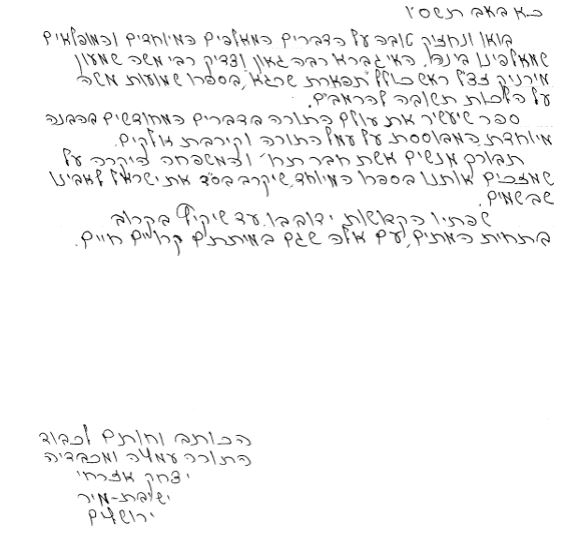 כ"א באב תשס"ו
בואו ונחזיק טובה על הדברים המאלפים המיוחדים והמופלאים
שמאלפינו בינה. האי גברא רבה גאון וצדיק רבי משה שמעון
מירניק זצ"ל ראש כולל "תפארת שרגא", בספרו שמועות משה
על הלכות תשובה להרמב"ם.
ספר שיעשיר את עולם התורה בדברים המחודשים בהבנה
מיוחדת המבוססת על עמל התורה וקירבת אלקים.
תבורך מנשים אשת חבר תחי' והמשפחה היקרה על
שמזכים אותנו בספרו המיוחד, שיקרב בס"ד את ישראל לאבינו
שבשמים.
שפתיו הקדושות ידובבו. עד שיקיץ בקרוב
בתחית המתים, עם אלה שגם במיתתם קרוים חיים.
הכותב וחותם לכבוד
התורה עמלה ומכבדיה
יצחק אזרחי
ישיבת-מיר
ירושלים